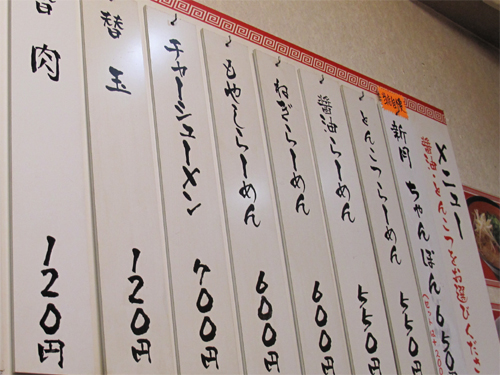 メニュー
醤油・とんこつとお選びくださ
新門 ちゃんぽん 650円
とんこつらーめん 550円
醤油らーめん 550円
ねぎらーめん 600円
もやしらーめん 600円
チャーシューメン 700円
替玉 120円
替肉 120円